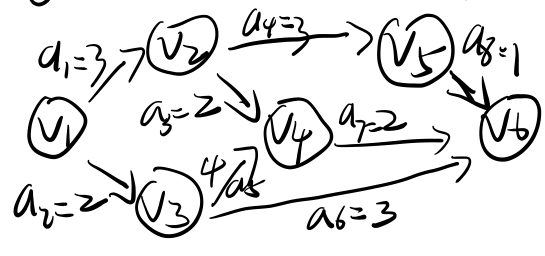 a₁=3
V₂
a₄=3
V₅
a₈=1
V₁
a₃=2
V₄
a₇=2
V₆
a₂=2
V₃
4/a₅
a₆=3